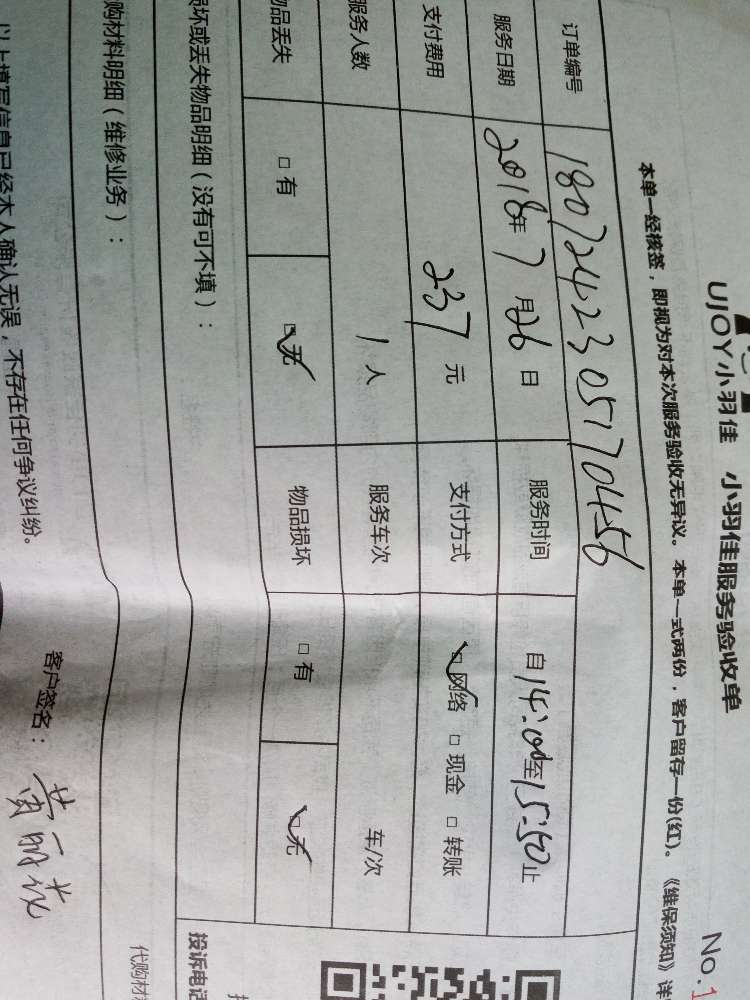 UJOY小羽佳 小羽佳服务验收单
No.1
本单一经核签，即视为对本次服务验收无异议。本单一式两份，客户留存一份(红)。《维保须知》详
订单编号 1807242305170456
服务日期 2018年7月26日 服务时间 自14:00至15:50止
支付费用 237元 支付方式 ☑网络 □现金 □转账
服务人数 1人 服务车次 车/次
物品丢失 □有 ☑无 物品损坏 □有 ☑无
损坏或丢失物品明细（没有可不填）：
购材料明细（维修业务）：
代购材
投诉电话
以上填写信息已经本人确认无误，不存在任何争议纠纷。
客户签名：